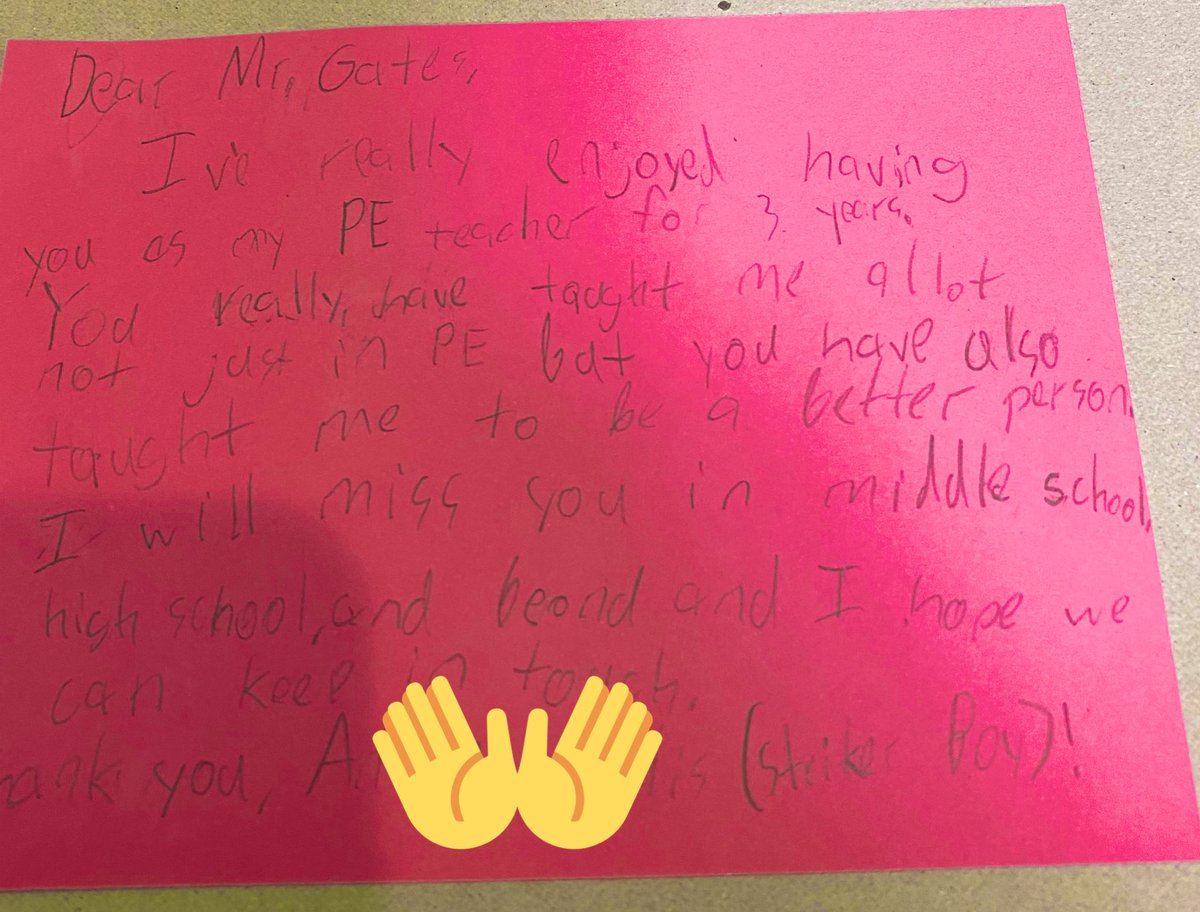 Dear Mr. Gates,
I've really enjoyed having
you as my PE teacher for 3 years.
You really, have taught me allot
not just in PE but you have also
taught me to be a better person.
I will miss you in middle school,
high school, and beond and I hope we
can keep in touch.
hank you, (Striker Boy)!